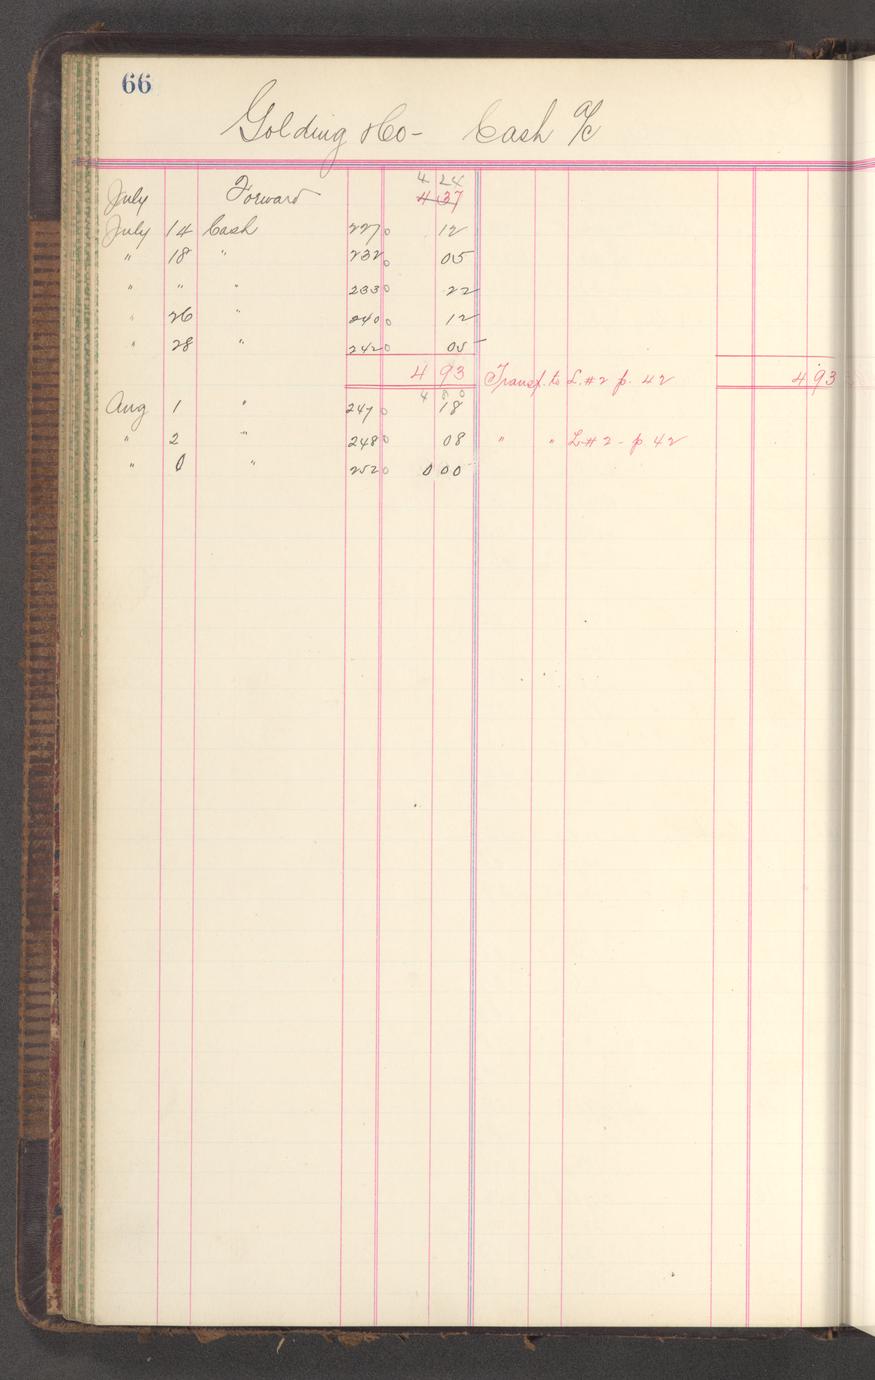 66
Golding & Co - Cash a/c
4 24
July Forward 4 37
July 14 Cash 227 0 12
" 18 " 232 0 05
" " " 233 0 22
" 26 " 240 0 12
" 28 " 242 0 05
4 93 Transf. to L. #2 p. 42 4 93
4 80
Aug 1 " 247 0 18
" 2 " 248 0 08 " " L #2 - p 42
" 252 0